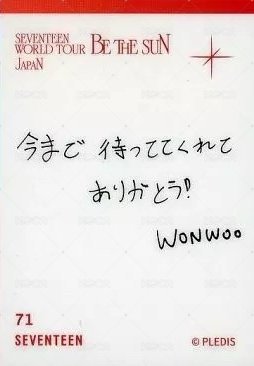 SEVENTEEN
WORLD TOUR BE THE SUN
JAPAN
今まで 待っててくれて
ありがとう!
WONWOO
71
SEVENTEEN
© PLEDIS